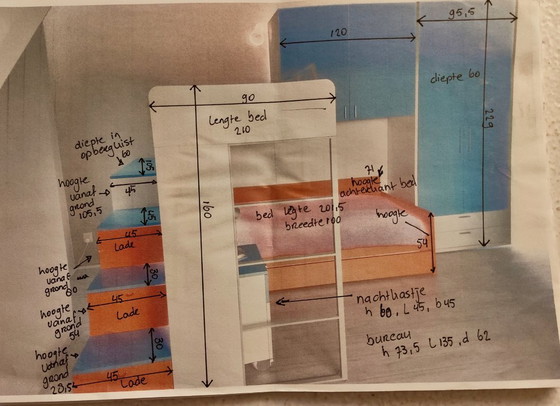 95,5
120
diepte 60
229
90
lengte bed
210
160
diepte in
opbergkist
60
45
hoogte
vanaf
grond
105,5
45
Lade
hoogte
vanaf
grond
80
30
45
Lade
hoogte
vanaf
grond
54
30
hoogte
vanaf
grond
28,5
45
Lade
71
hoogte
achterkant bed
bed legte 201,5
breedte 100
hoogte
54
nachtkastje
h 60, L 45, b 45
bureau
h 73,5 L 135, d 62